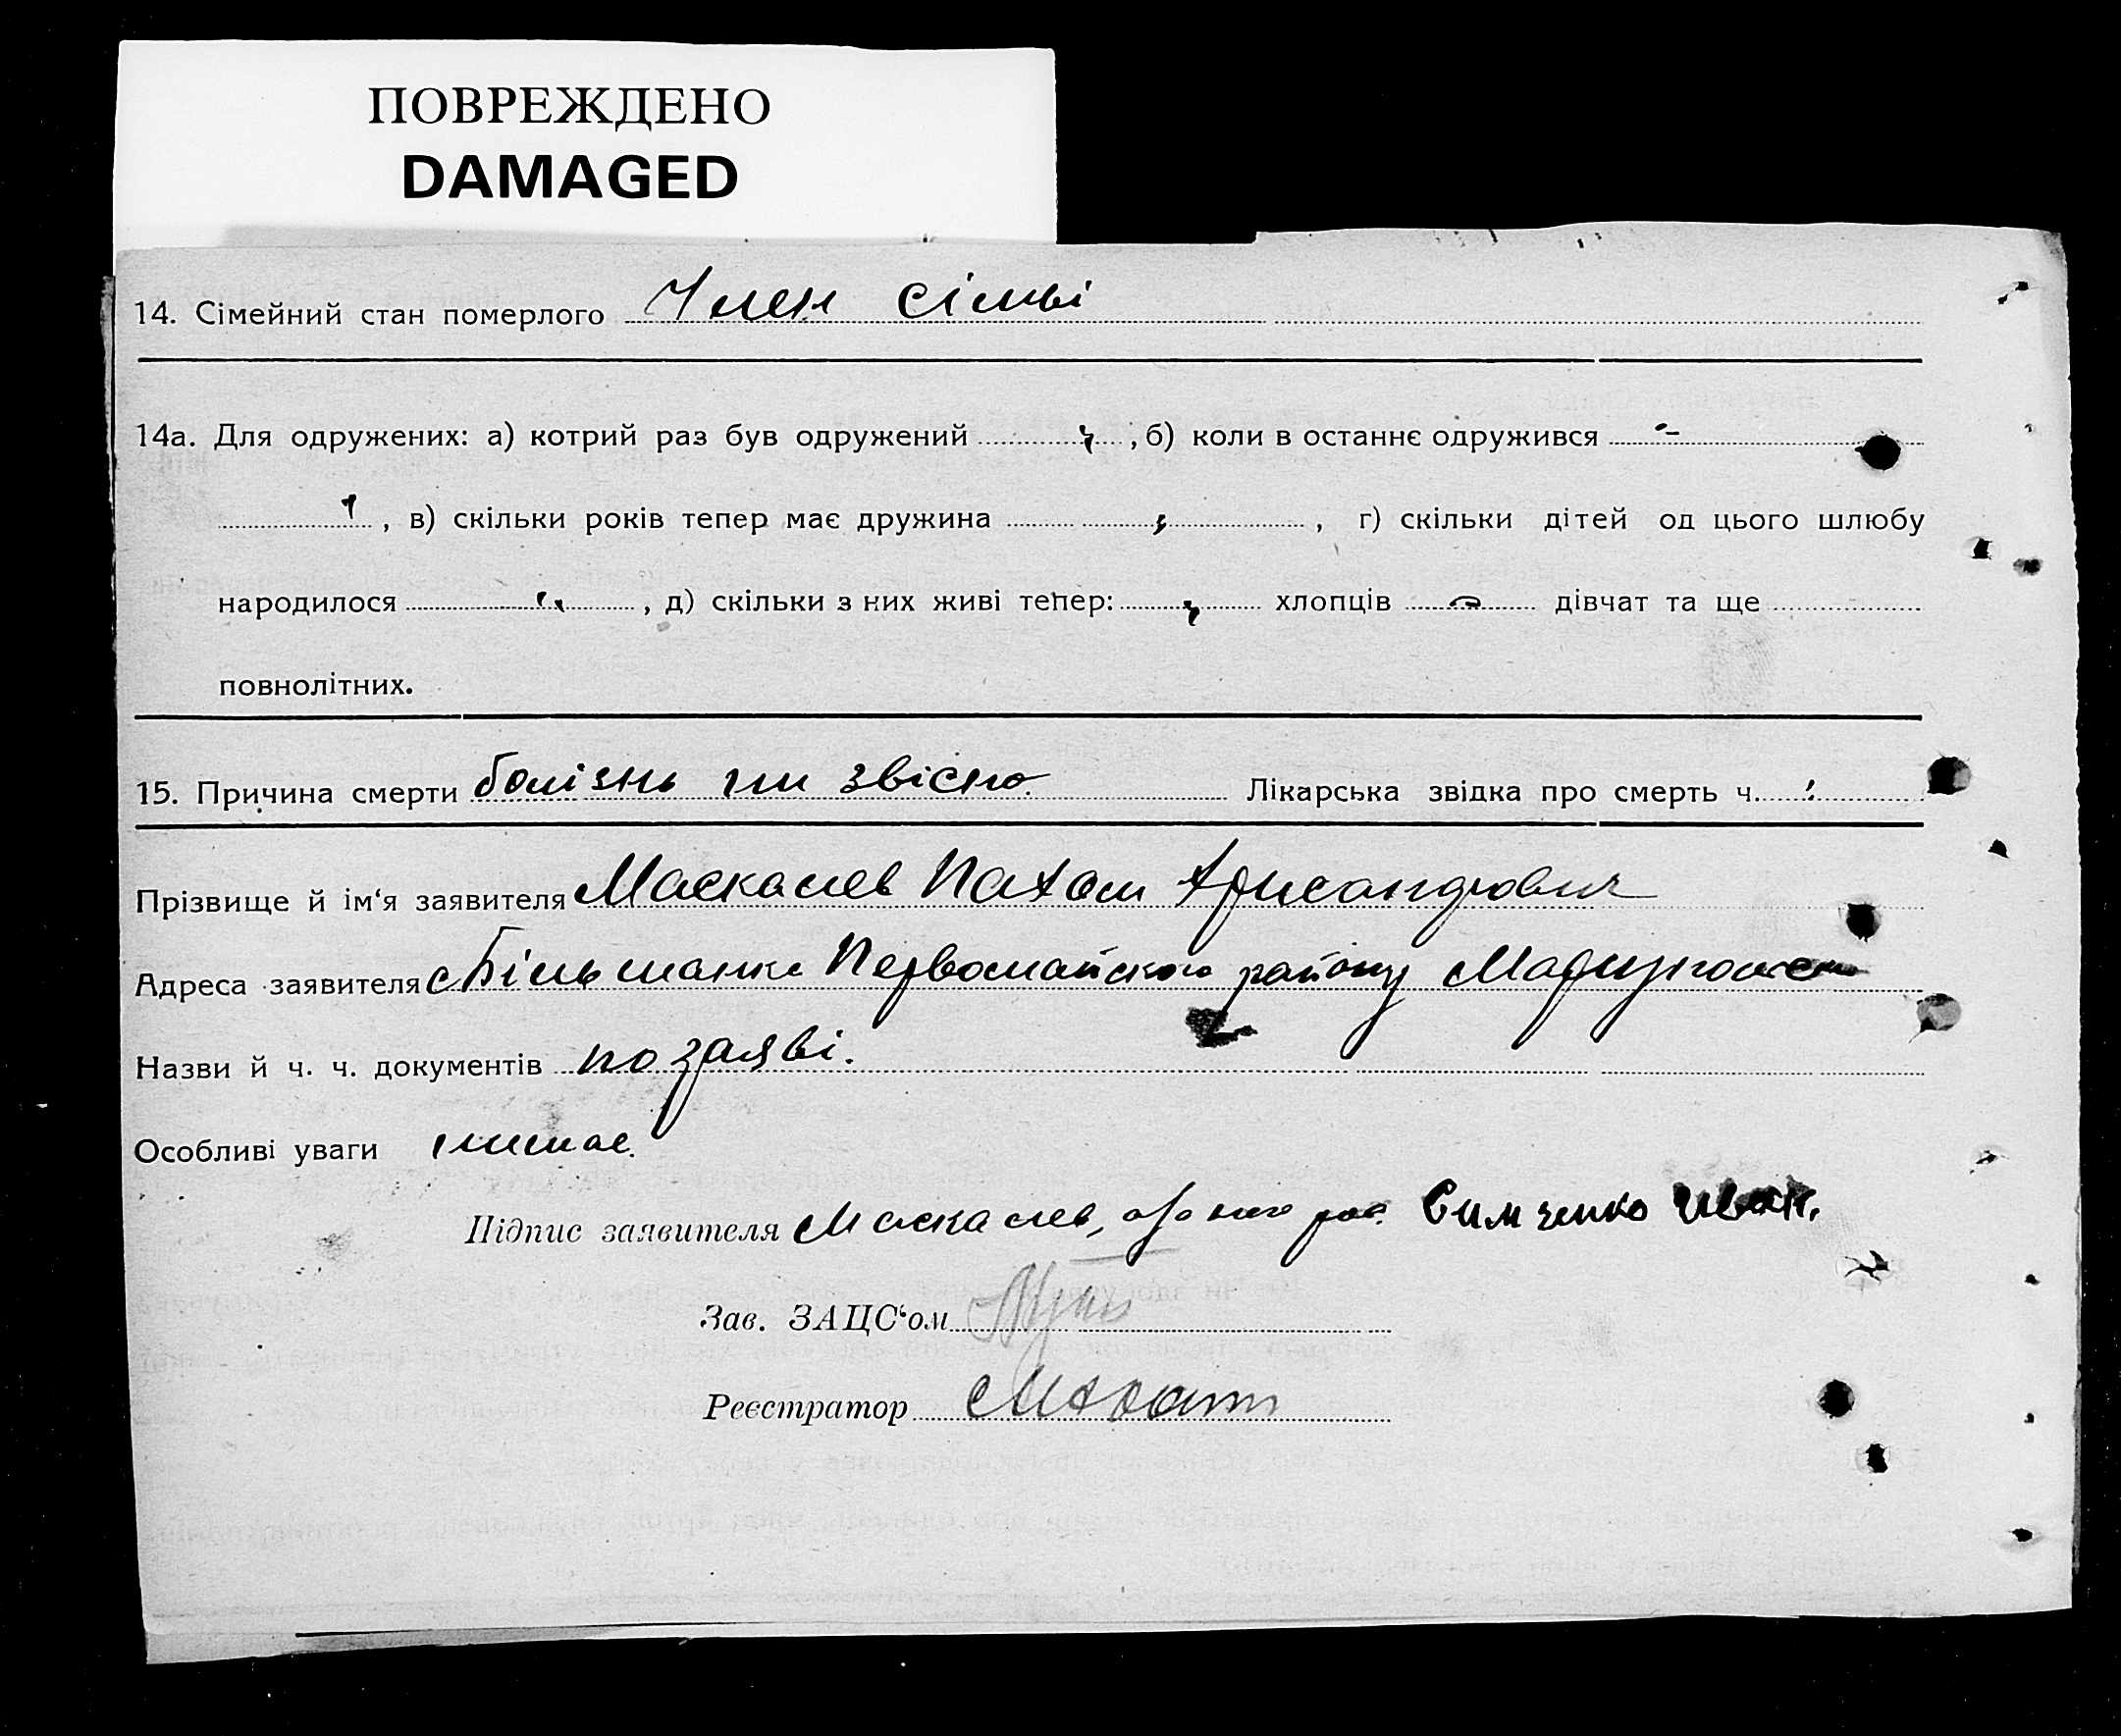 ПОВРЕЖДЕНО
DAMAGED
14. Сімейний стан померлого Член сімьі
14а. Для одружених: а) котрий раз був одружений , б) коли в останнє одружився -
, в) скільки років тепер має дружина , г) скільки дітей од цього шлюбу
народилося , д) скільки з них живі тепер: хлопців дівчат та ще
повнолітних.
15. Причина смерти болізнь ни звісно. Лікарська звідка про смерть ч.
Прізвище й ім‘я заявителя Маскалев Пахом
Адреса заявителя с Більманка Первомайского району
Назви й ч. ч. документів по заяві.
Особливі уваги нимае.
Підпис заявителя Маскалев, а за него рос. Симченко Иван.
Зав. ЗАЦС‘ом
Реєстратор